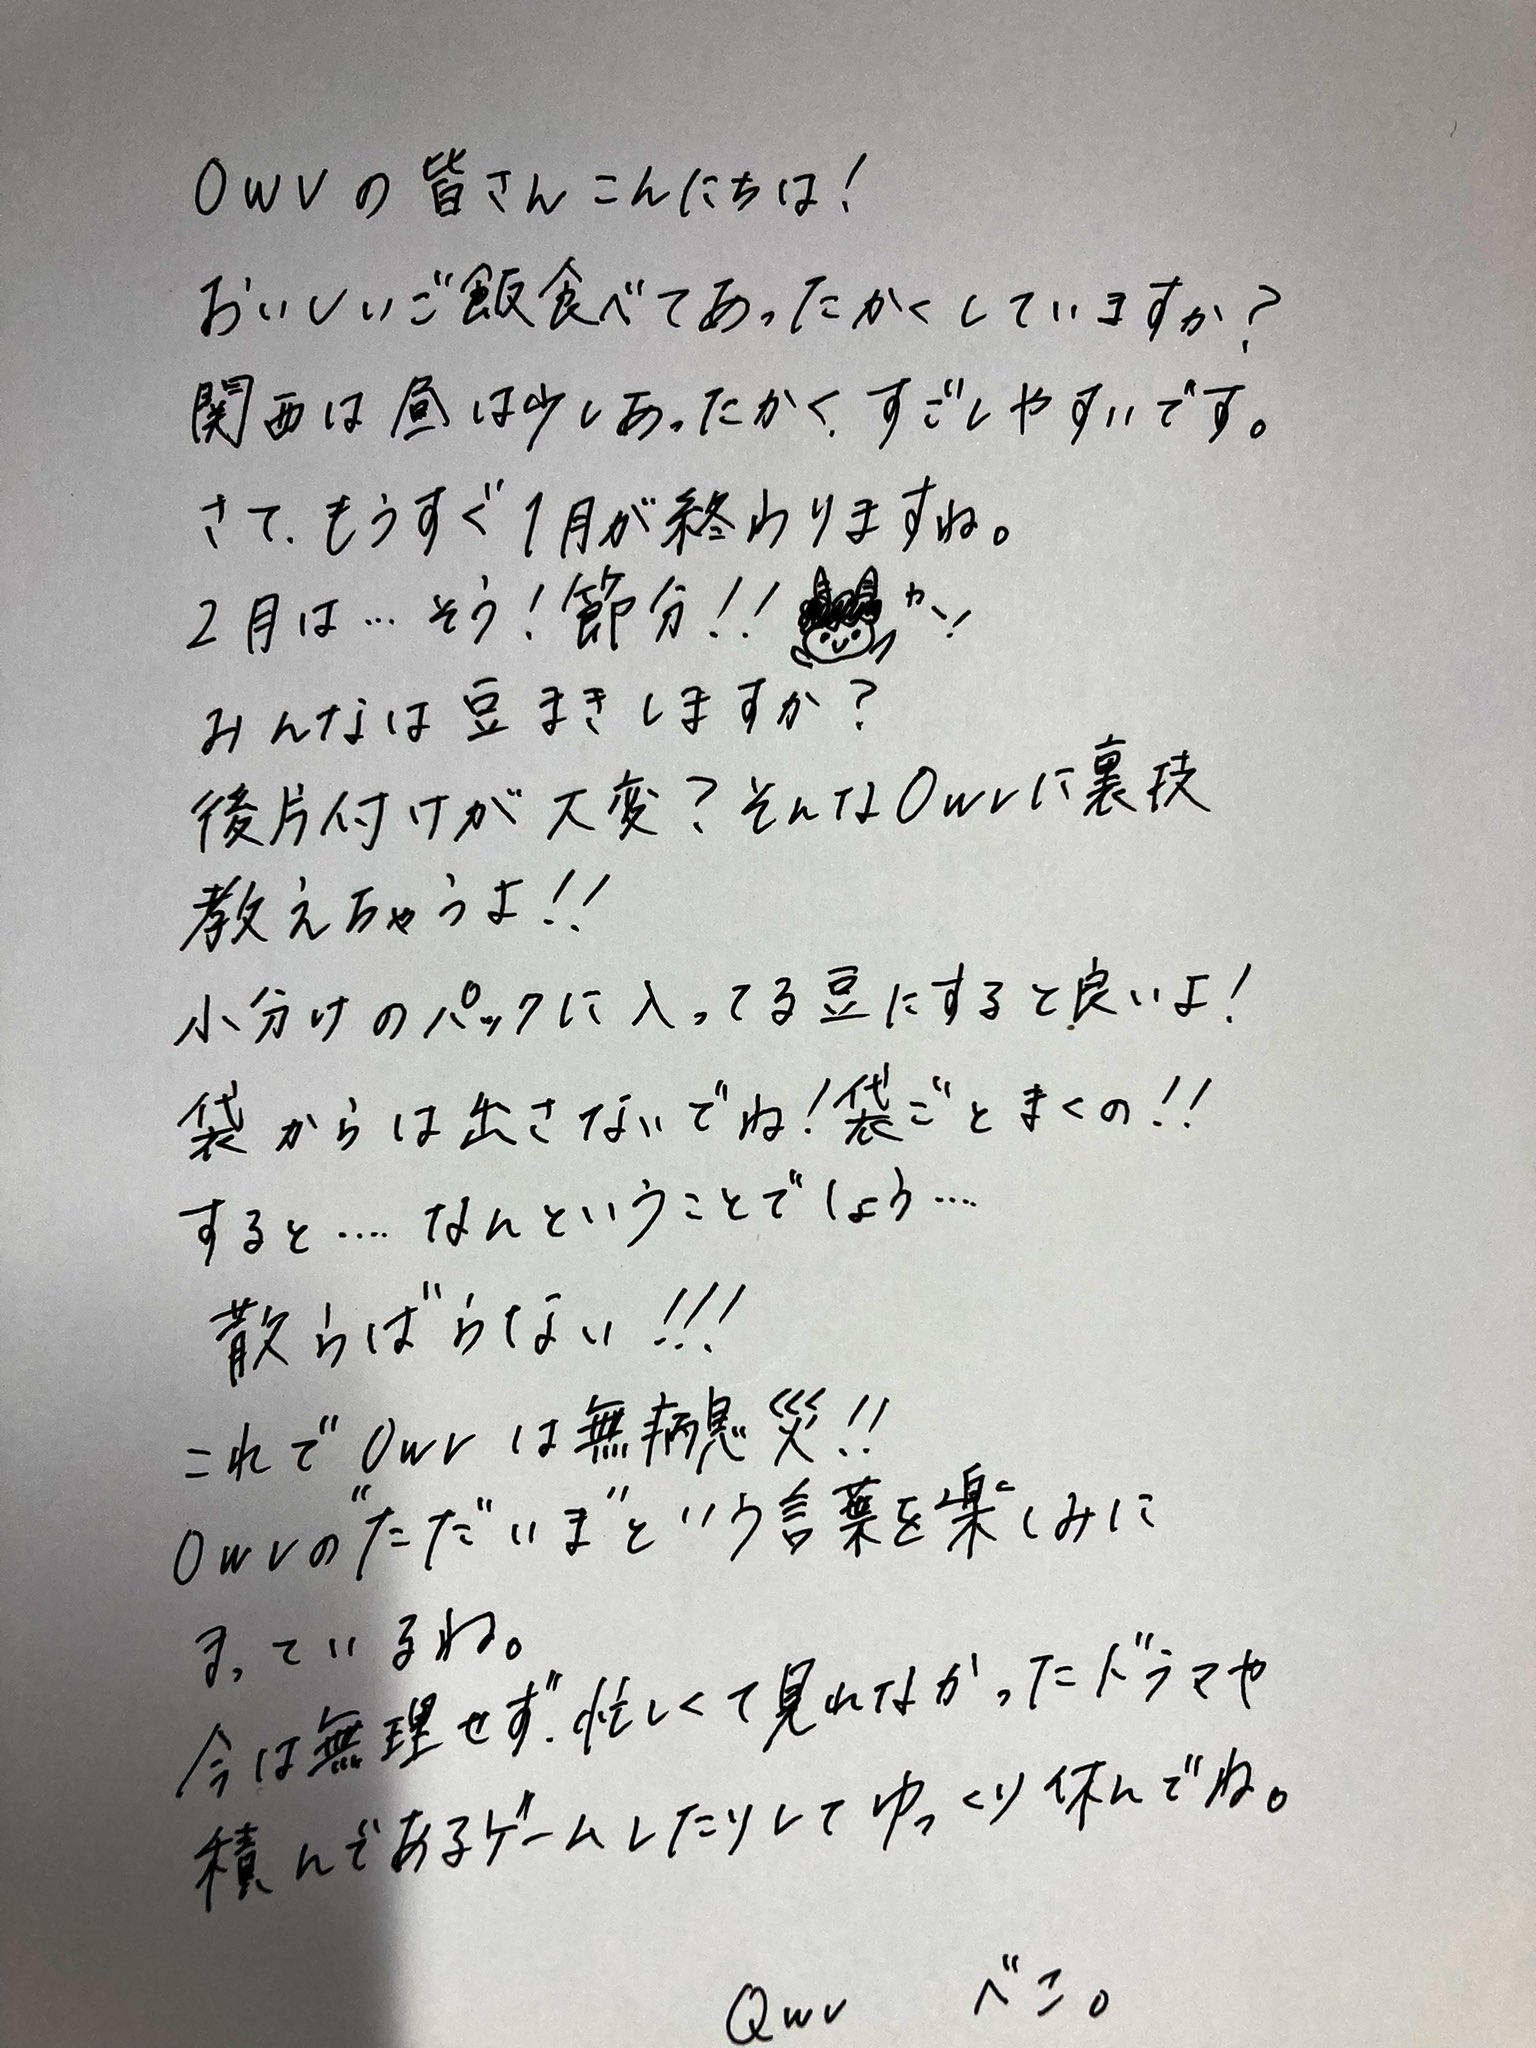 OWVの皆さんこんにちは!
おいしいご飯食べてあったかくしていますか?
関西は昼は少しあったかく、すごしやすいです。
さて、もうすぐ1月が終わりますね。
2月は…そう!節分!! ガオー!
みんなは豆まきしますか?
後片付けが大変?そんなOwvに裏技
教えちゃうよ!!
小分けのパックに入ってる豆にすると良いよ!
袋からは出さないでね!袋ごとまくの!!
すると….なんということでしょう….
散らばらない!!!
これでOwvは無病息災!!
Owvの"ただいま"という言葉を楽しみに
まっているね。
今は無理せず、忙しくて見れなかったドラマや
積んであるゲームしたりしてゆっくり休んでね。
Qwv べこ。